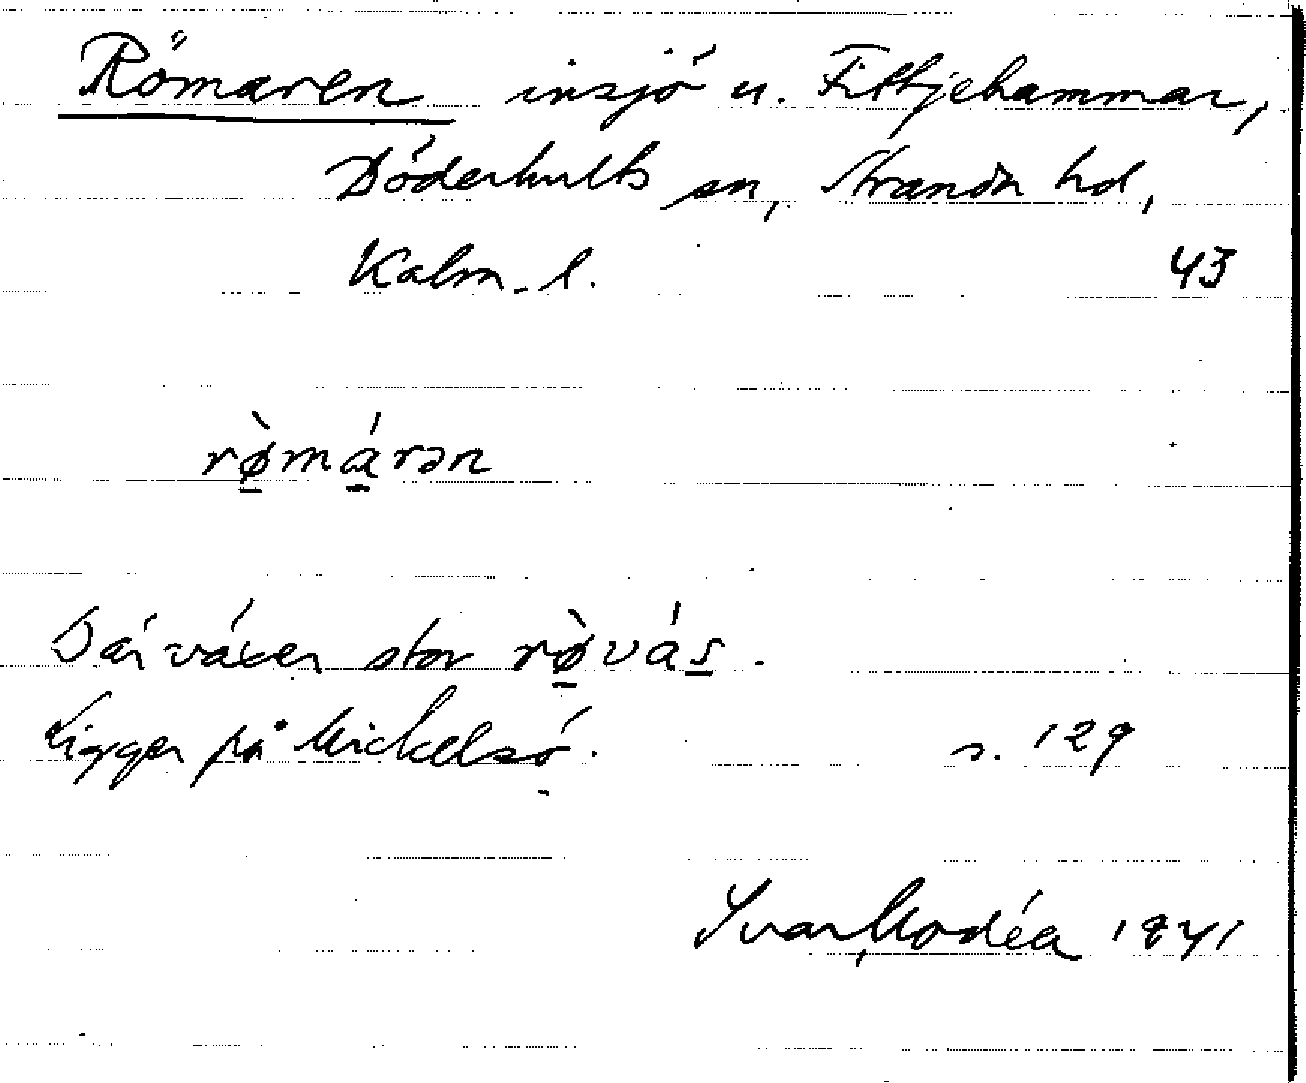 Römaren insjö u. Fittjehammar,
Döderhults sn, Strands hd,
Kalm. l. 43
rø̀márən
Där växer stor rø̀vás.
Ligger på Mickelsö. s. 129
Ivar Modéer 1941